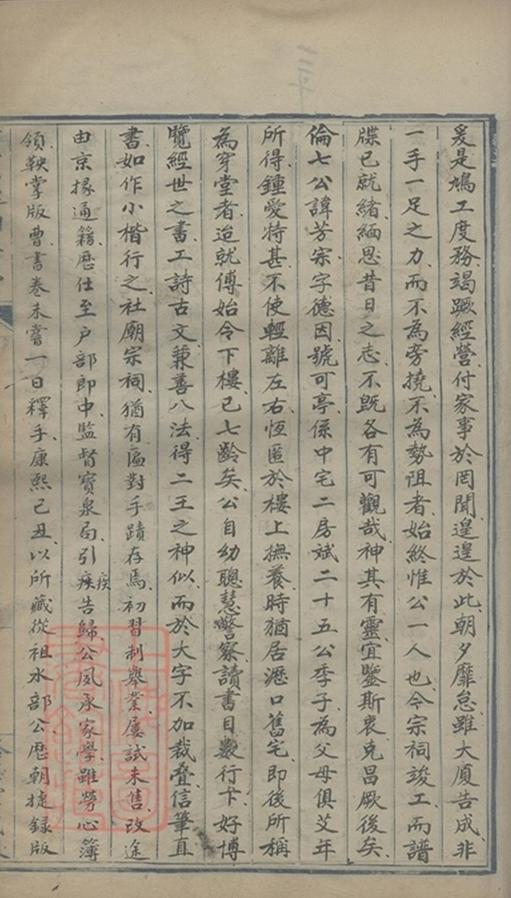 爰是鳩工度務竭蹶經營付家事於罔聞遑遑於此朝夕靡怠雖大厦告成非
一手一足之力而不為旁撓不為勢阻者始終惟公一人也今宗祠竣工而譜
牒已就緒緬思昔日之志不既各有可觀哉神其有靈宜鑒斯衷克昌厥後矣
倫七公諱芳宗字德因號可亭係中宅二房斌二十五公季子為父母俱艾年
所得鍾愛特甚不使輕離左右恆匿於樓上撫養時猶居瀝口舊宅即後所稱
為穿堂者迨就傅始令下樓已七齡矣公自幼聰慧警察讀書目數行下好博
覽經世之書工詩古文兼善八法得二王之神似而於大字不加裁疊信筆直
書如作小楷行之社廟宗祠猶有匾對手蹟存焉初習制舉業屢試未售改途
由京掾通籍歷仕至戶部郎中監督寳泉局引疾疾告歸公夙承家學雖勞心簿
領鞅掌版曹書卷未嘗一日釋手康熙己丑以所藏從祖水部公歷朝捷録版